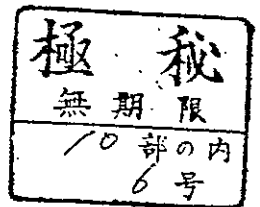 極秘
無期限
10部の内
6号